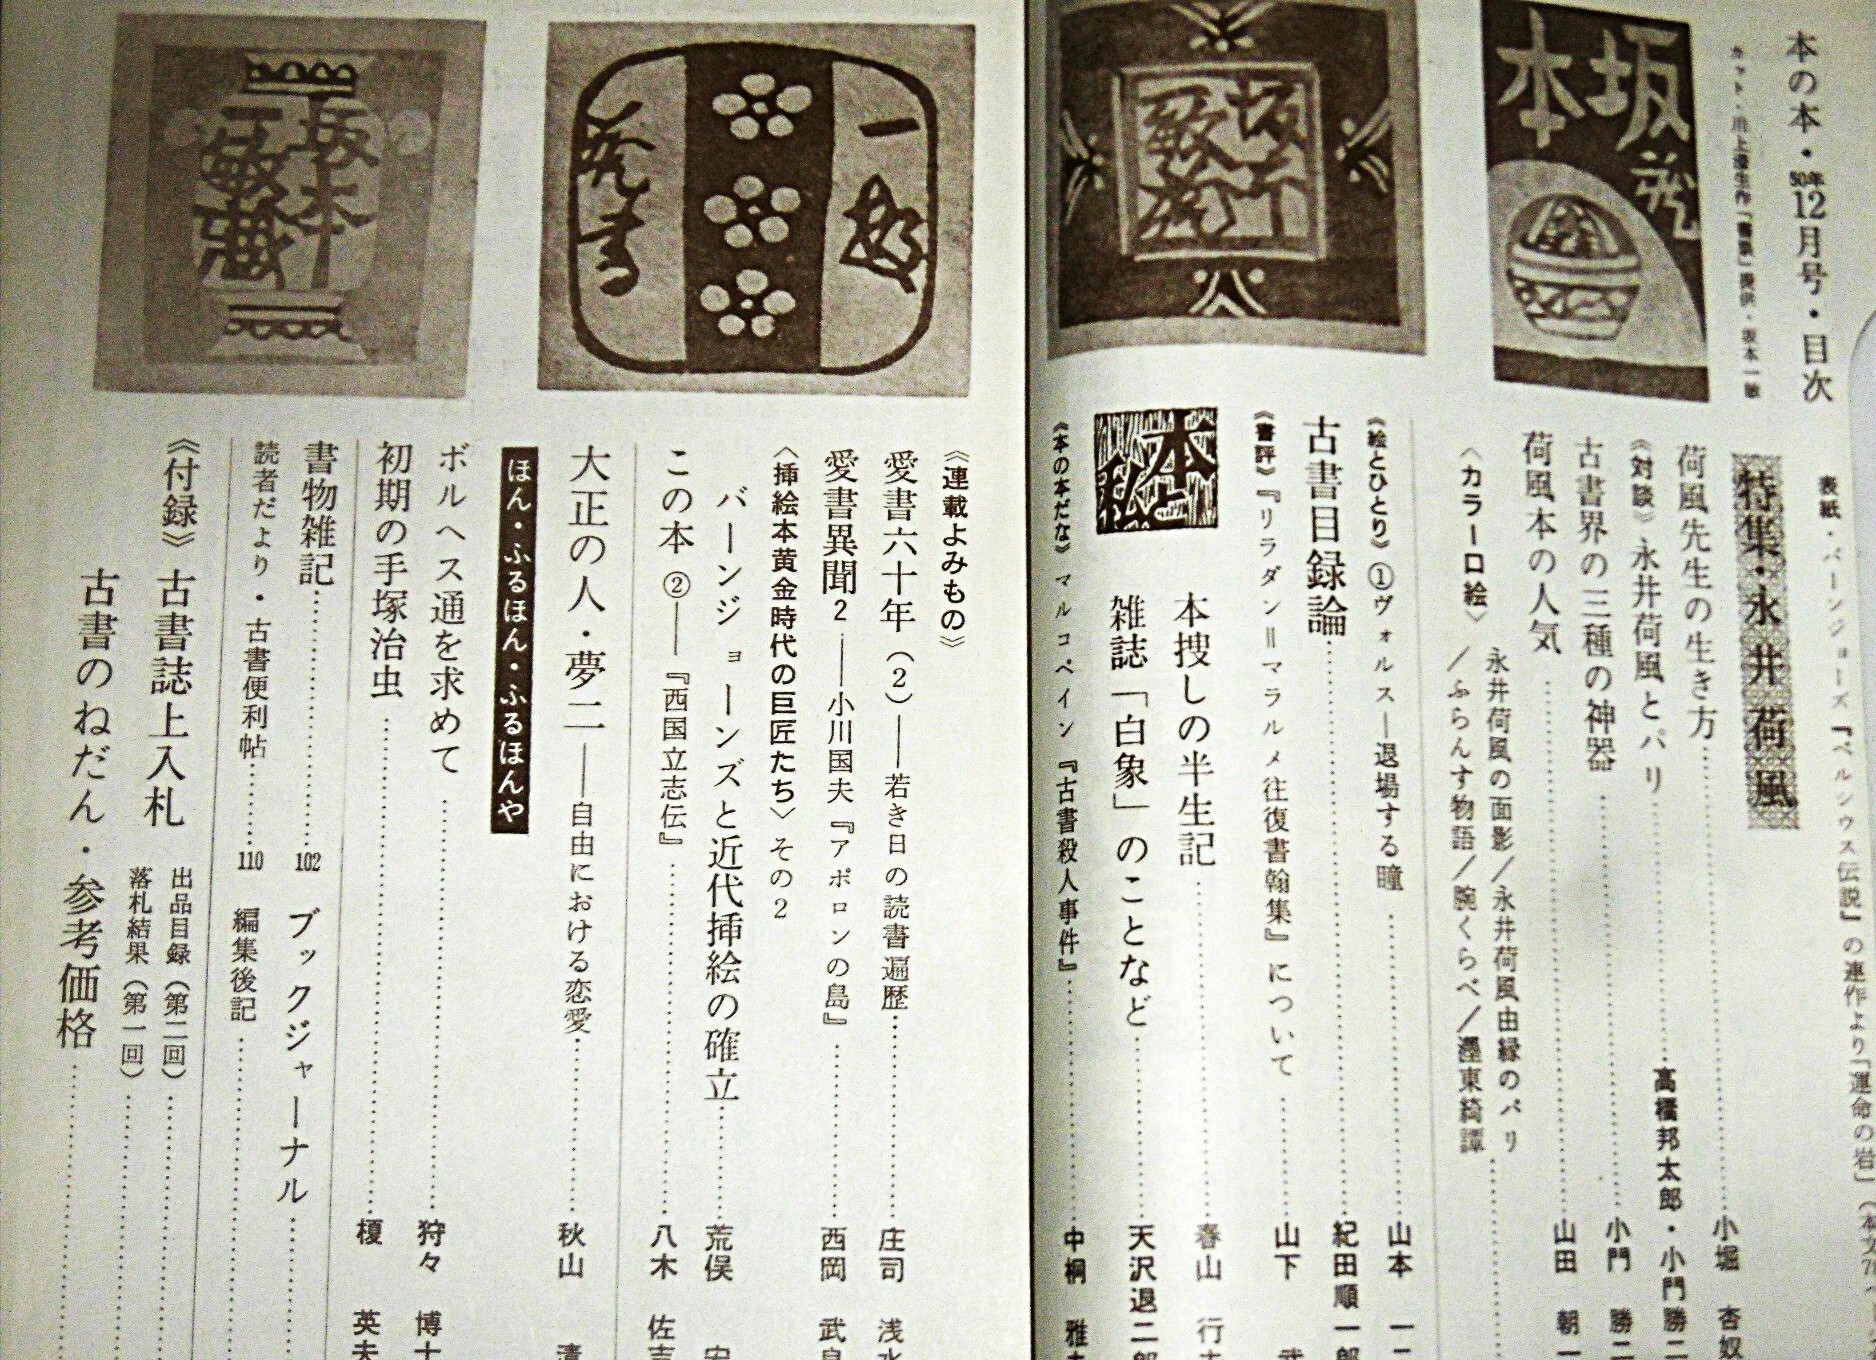 本の本・50年12月号・目次
カット・川上澄生作「書票」提供・坂本一敏
表紙・バーンジョーンズ『ペルシウス伝説』の連作より「運命の岩」（本文
特集・永井荷風
荷風先生の生き方 小堀 杏奴
《対談》永井荷風とパリ 高橋邦太郎・小門勝二
古書界の三種の神器 小門 勝二
荷風本の人気 山田 朝一
〈カラー口絵〉
永井荷風の面影／永井荷風由縁のパリ
／ふらんす物語／腕くらべ／濹東綺譚
《絵とひとり》①ヴォルス―退場する瞳 山本
古書目録論 紀田順一郎
《書評》『リラダン＝マラルメ往復書翰集』について 山下 武
本捜しの半生記 春山 行夫
雑誌「白象」のことなど 天沢退二郎
《本の本だな》マルコペイン『古書殺人事件』 中桐 雅夫
《連載よみもの》
愛書六十年（2）――若き日の読書遍歴 庄司 浅水
愛書異聞2――小川国夫『アポロンの島』 西岡 武良
〈挿絵本黄金時代の巨匠たち〉その2
バーンジョーンズと近代挿絵の確立 荒俣 宏
この本②――『西国立志伝』 八木 佐吉
大正の人・夢二――自由における恋愛 秋山 清
ほん・ふるほん・ふるほんや
ボルヘス通を求めて 狩々 博士
初期の手塚治虫 榎 英夫
書物雑記 102
ブックジャーナル
読者だより・古書便利帖 110
編集後記
《付録》古書誌上入札
出品目録（第二回）
落札結果（第一回）
古書のねだん・参考価格